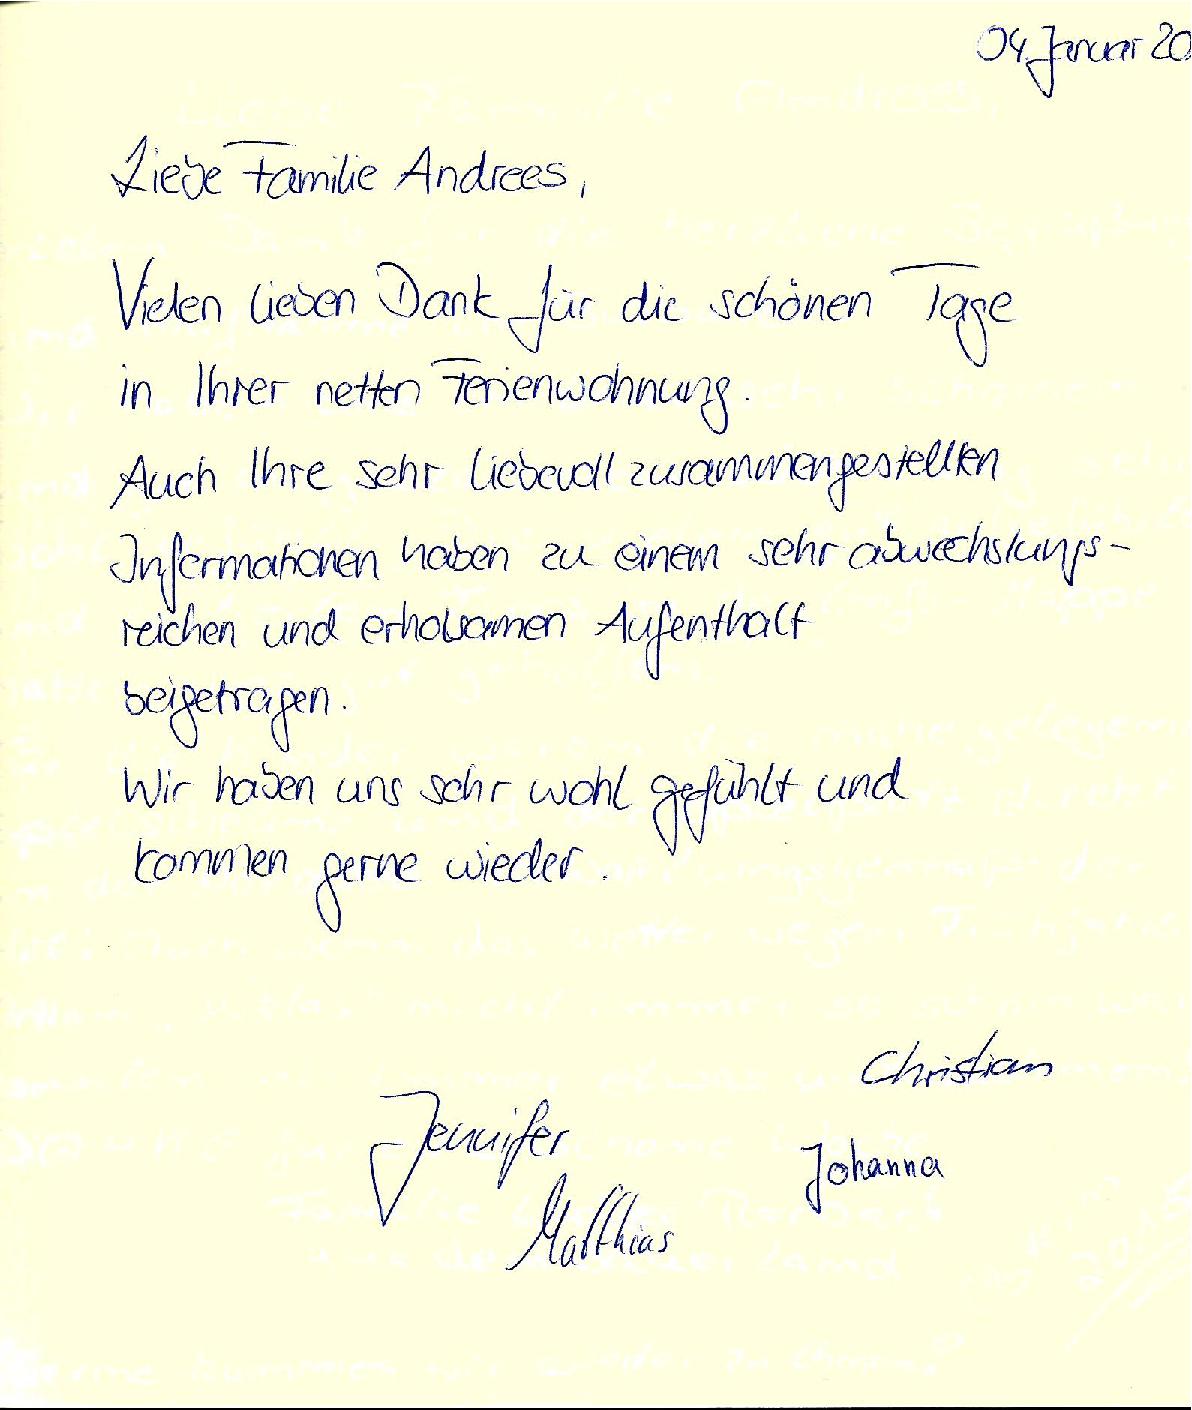 04. Januar 20
Liebe Familie Andrees,
Vielen lieben Dank für die schönen Tage
in Ihrer netten Ferienwohnung.
Auch Ihre sehr liebevoll zusammengestellten
Informationen haben zu einem sehr abwechslungs-
reichen und erholsamen Aufenthalt
beigetragen.
Wir haben uns sehr wohl gefühlt und
kommen gerne wieder.
Christian
Jennifer
Johanna
Matthias